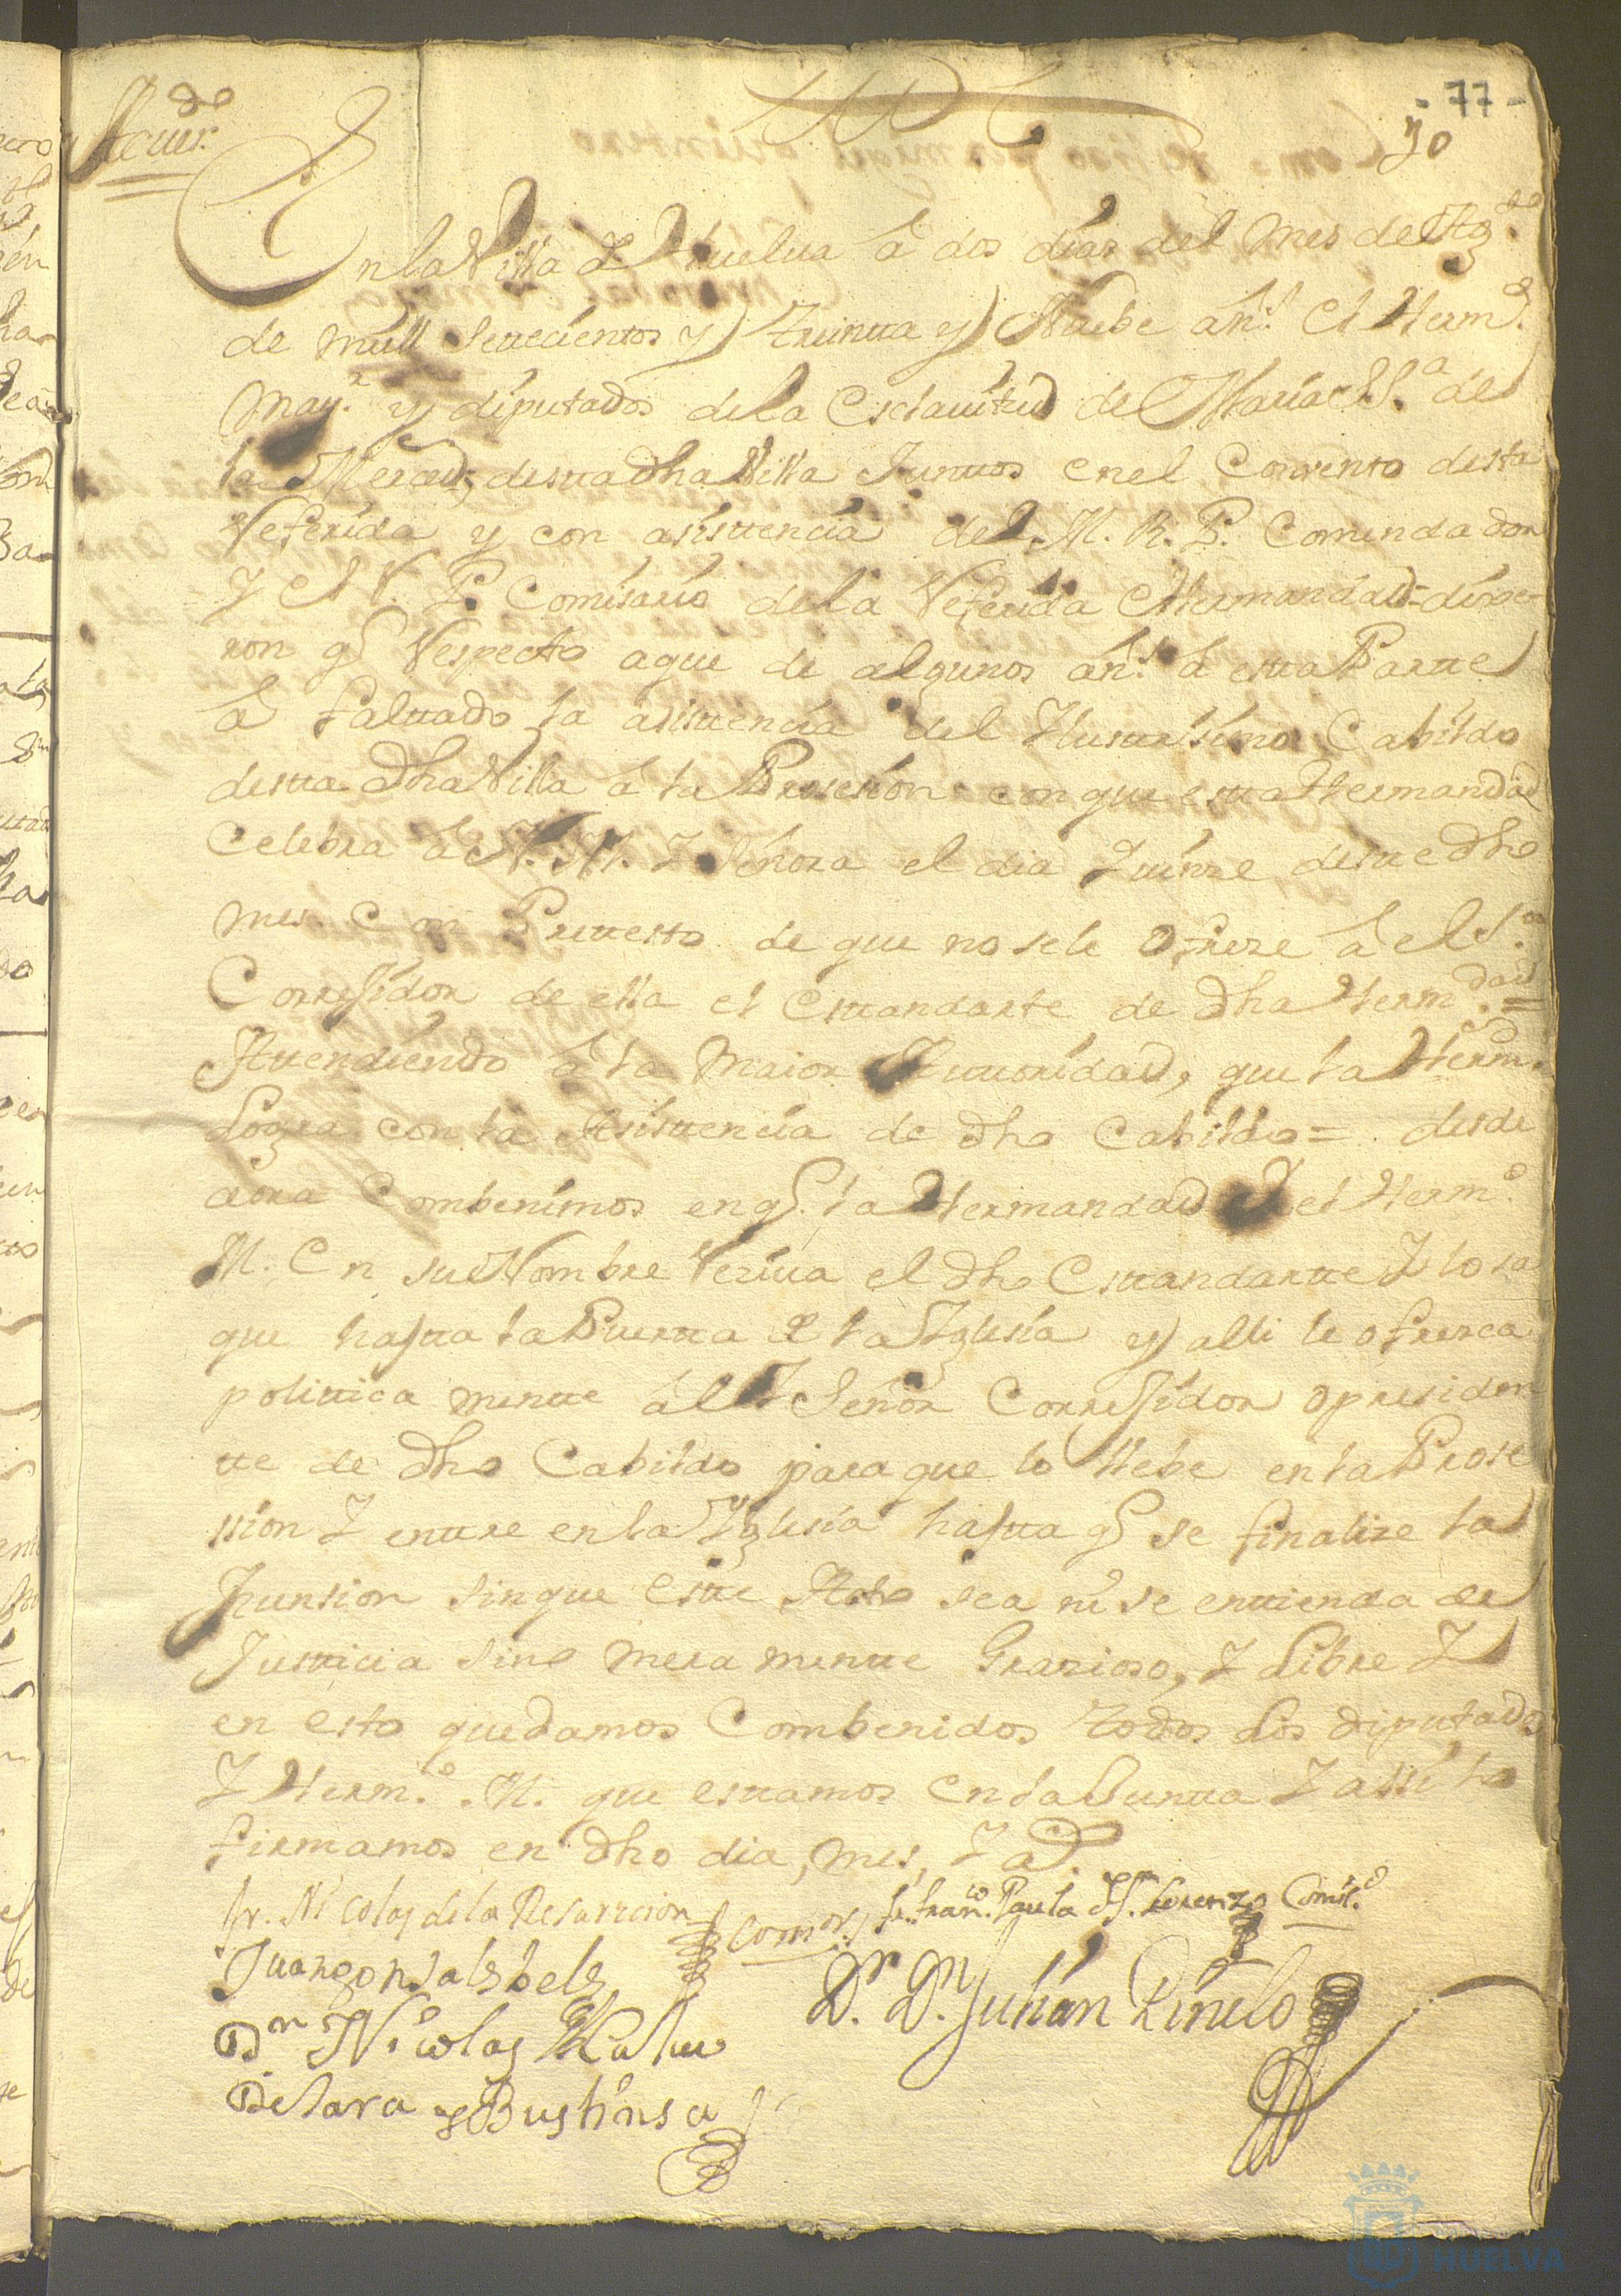 - 77 -
70
Acuer.do
En la Villa de Huelua â dos dias del Mes de Ag.to
de mill Settecientos y treinta y Nuebe an.s el Herm.o
May.r y diputados de la Esclauitud de Maria SS.a de
la Merced, desta dha Villa Juntos en el Convento desta
Referida y con asistencia del M. R. P. Comendador
Y el R. P. Comisario de la Referida Hermandad= dixe-
ron q Respecto a que de algunos an.s â esta Parte
â faltado la asistencia del Ylustrisimo Cabildo
desta dha Villa â la Prosesion con que esta Hermandad
Celebra â N. M. Y Señora el dia Quinze deste dho
mes. Con Pretesto de que no se le Ofreze â el S.or
Corregidor de ella el Estandarte de dha Herm.dad =
Attendiendo â la Maior Autoridad, que la Herm.d
Logra con la Asistencia de dho Cabildo = desde
aora Combenimos en q. la Hermandad Y el Herm.o
M. En su Nombre Reciua el dho Estandarte Y lo sa
que hasta la Puerta de la Yglesia y alli le ofresca
politica mente âl Señor Corregidor o presiden
te de dho Cabildo para que lo llebe en la Prose
ssion Y entre en la Yglesia hasta q se finalize la
Funsion sin que este Acto sea ni se entienda de
Justicia sino mera mente Grazioso, Y Libre Y
en esto quedamos Combenidos todos Los diputados
Y Herm.o M. que estamos en la Junta Y assi lo
firmamos en dho dia, mes, Y a
fr. Nicolas de la Resurrecion Com.or
fr. Fran.co Paula S. Lorenzo Comis.o
Juan gonsales belez
Dr. Dn Julian Rinilo
Dn Nicolas
De lara y Bustinsa
HUELVA